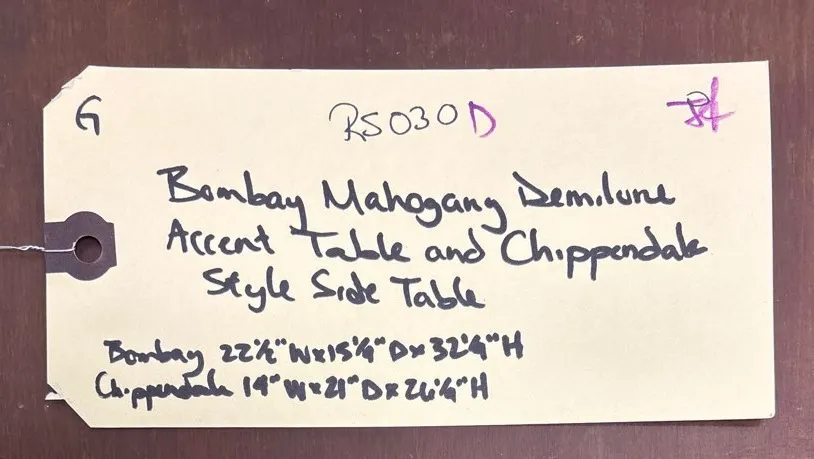 G
RS030D
Bombay Mahogany Demilune
Accent Table and Chippendale
Style Side Table
Bombay 22½" W x 15¼" D x 32¼" H
Chippendale 19" W x 21" D x 26¼" H